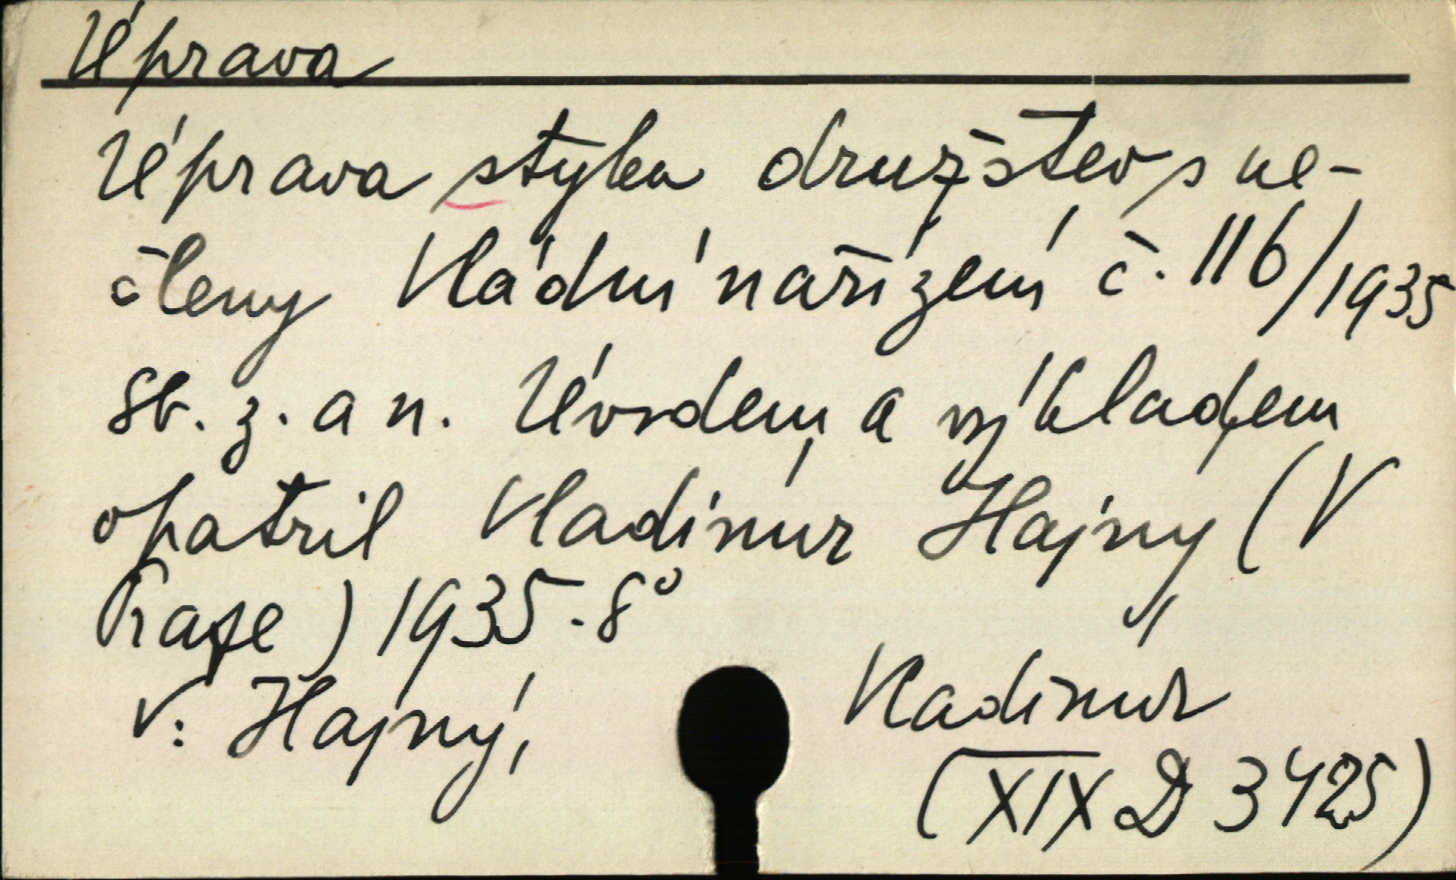 Úprava
Úprava styku družstev s ne-
členy Vládní nařízení č. 116/1935
Sb. z. a n. Úvodem a výkladem
opatřil Vladimír Hajný (V
Praze) 1935. 8°
V: Hajný, Vladimír
(XIX D 3425)